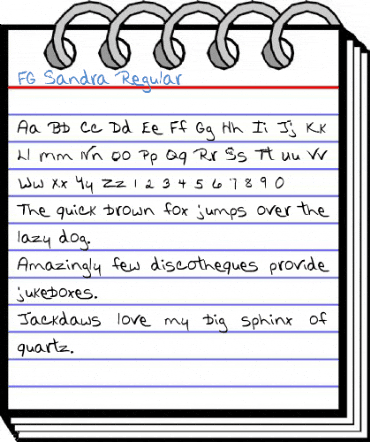 FG Sandra Regular
Aa Bb Cc Dd Ee Ff Gg Hh Ii Jj Kk
Ll mm Nn oo Pp Qq Rr Ss Tt uu Vv
Ww Xx Yy Zz 1 2 3 4 5 6 7 8 9 0
The quick brown fox jumps over the
lazy dog.
Amazingly few discotheques provide
jukeboxes.
Jackdaws love my big sphinx of
quartz.